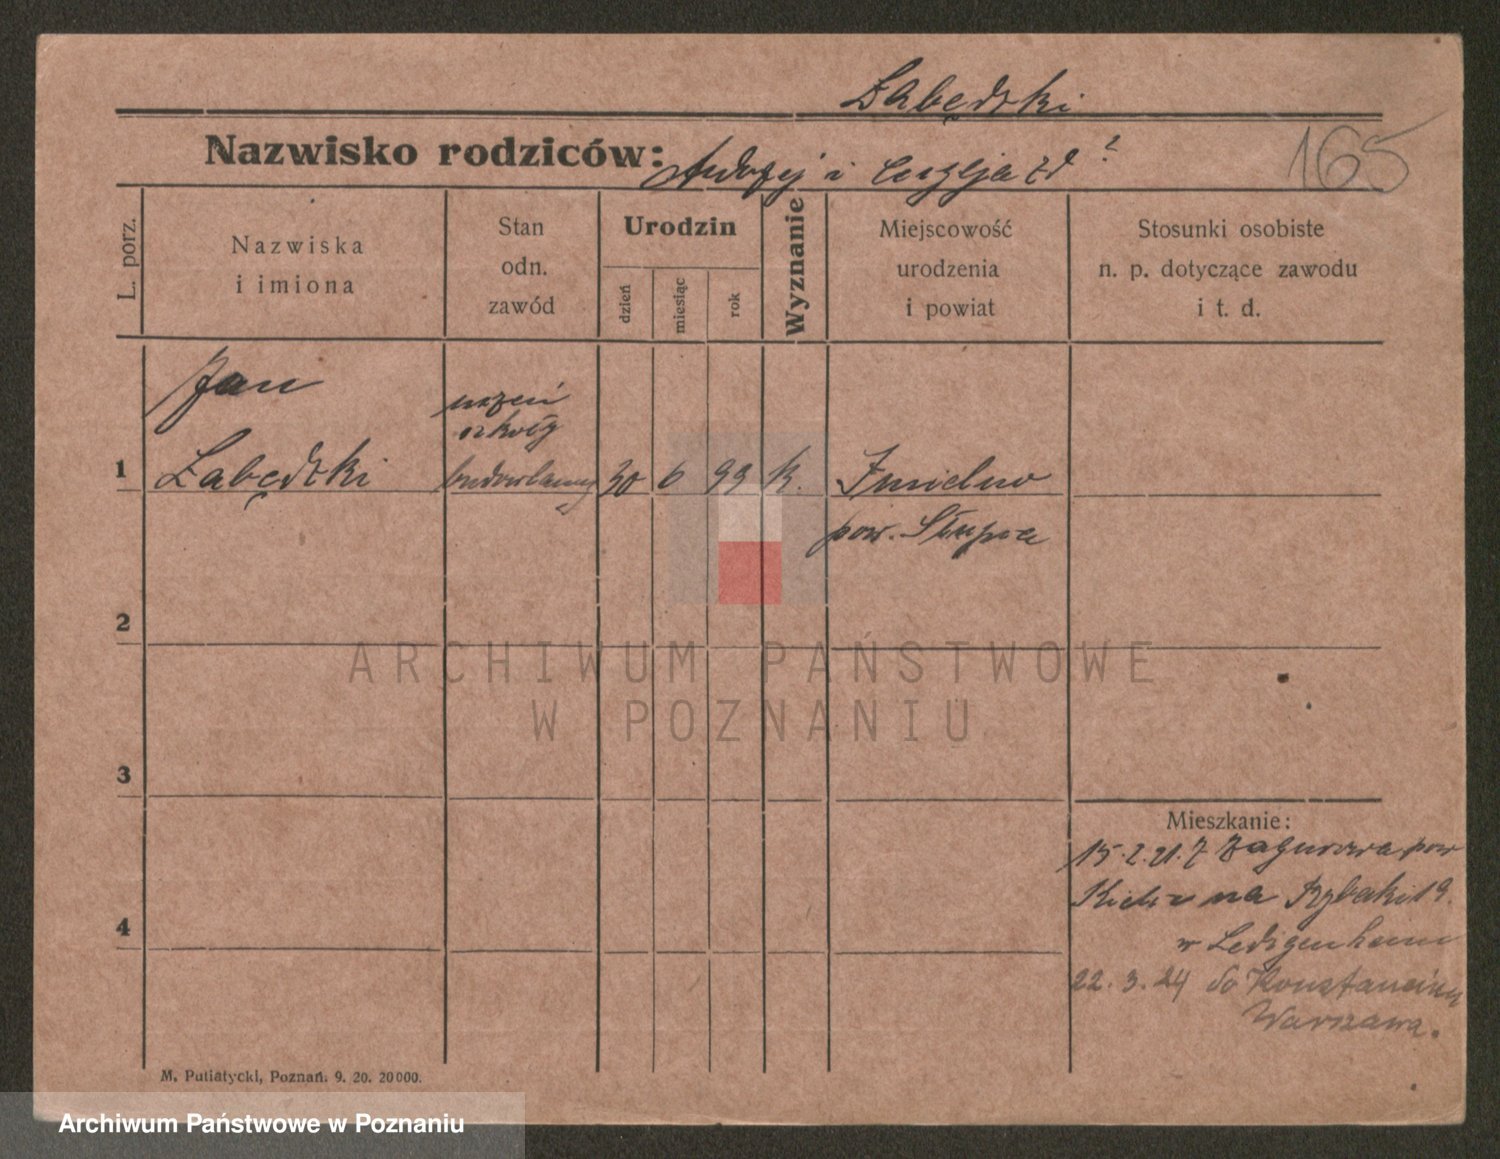 Łabędzki
Nazwisko rodziców: Andrzej i
165
L. porz.
Nazwiska
i imiona
Stan
odn.
zawód
Urodzin
dzień
miesiąc
rok
Wyznanie
Miejscowość
urodzenia
i powiat
Stosunki osobiste
n. p. dotyczące zawodu
i t. d.
Jan
uczeń
szkoły
1 Łabędzki budowlanej 30 6 99 k. Imielno
pow. Słupca
2
3
4
ARCHIWUM PAŃSTWOWE
W POZNANIU
Mieszkanie:
15. 2. 21. Z Zagurowa pow
na Rybaki 19.
w Ledigenheim
22. 3. 24 do Konstancina
Warszawa.
M. Putiatycki, Poznań. 9. 20. 20000.
Archiwum Państwowe w Poznaniu